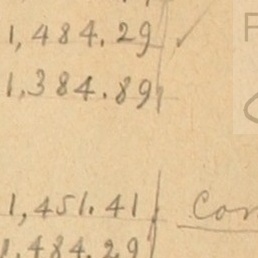 1,484.29 ✓
1,384.89
1,451.41
1,484.29